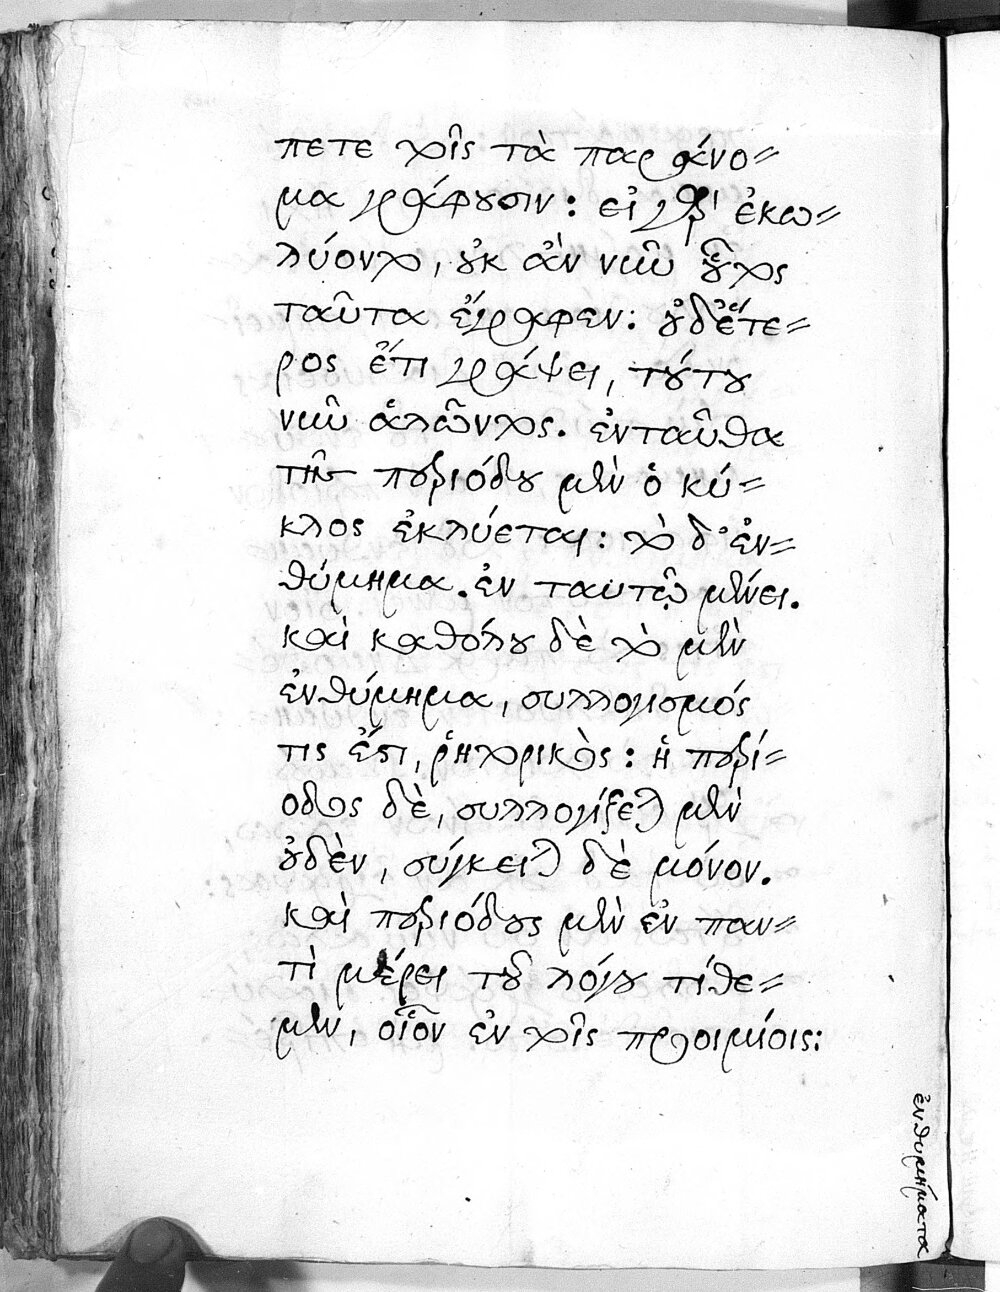 πετε τοῖς τὰ παράνο=
μα γράφουσιν: εἰ γὰρ ἐκω=
λύοντο, οὐκ ἂν νῦν οὗτος
ταῦτα ἔγραφεν: οὐδ' ἕτε=
ρος ἔτι γράψει, τούτου
νῦν ἁλῶντος. ἐνταῦθα
τῆς περιόδου μὲν ὁ κύ=
κλος ἐκλύεται: τὸ δ' ἐν=
θύμημα. ἐν ταυτῷ μένει.
καὶ καθόλου δὲ τὸ μὲν
ἐνθύμημα, συλλογισμός
τις ἔστι, ῥητορικὸς: ἡ περί=
οδος δὲ, συλλογίζεται μὲν
οὐδὲν, σύγκειται δὲ μόνον.
καὶ περιόδους μὲν ἐν παν=
τὶ μέρει τοῦ λόγου τίθε=
μεν, οἷον ἐν τοῖς προοιμίοις:
ἐνθυμήματα